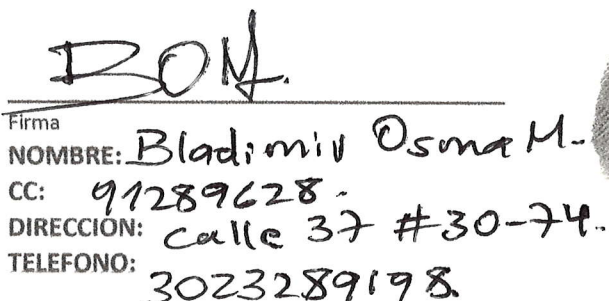 BOM.
Firma
NOMBRE: Bladimir Osma M.
CC: 91289628.
DIRECCIÓN: calle 37 #30-74.
TELEFONO: 3023289198.